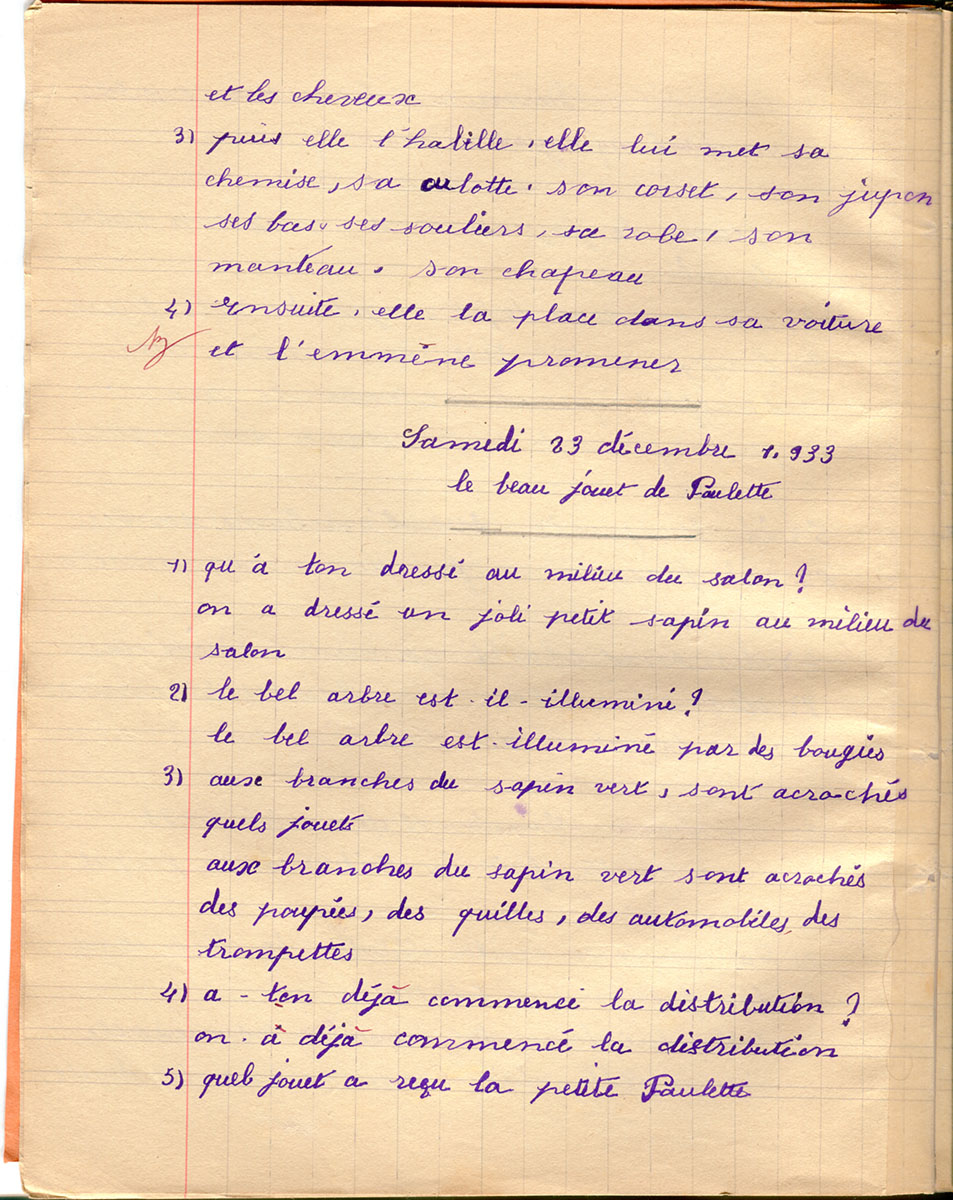 et les cheveux
3) puis elle l'habille, elle lui met sa
chemise, sa culotte, son corset, son jupon
ses bas, ses souliers, sa robe, son
manteau, son chapeau
4) ensuite, elle la place dans sa voiture
et l'emmène promener
Samedi 23 décembre 1.933
le beau jouet de Paulette
1) qu'à ton dressé au milieu du salon ?
on a dressé un joli petit sapin au milieu du
salon
2) le bel arbre est-il-illuminé ?
le bel arbre est-illuminé par des bougies
3) aux branches du sapin vert, sont acrochés
quels jouets
aux branches du sapin vert sont acrochés
des poupées, des quilles, des automobiles, des
trompettes
4) a-ton déjà commencé la distribution ?
on. à déjà commencé la distribution
5) quel jouet a reçu la petite Paulette